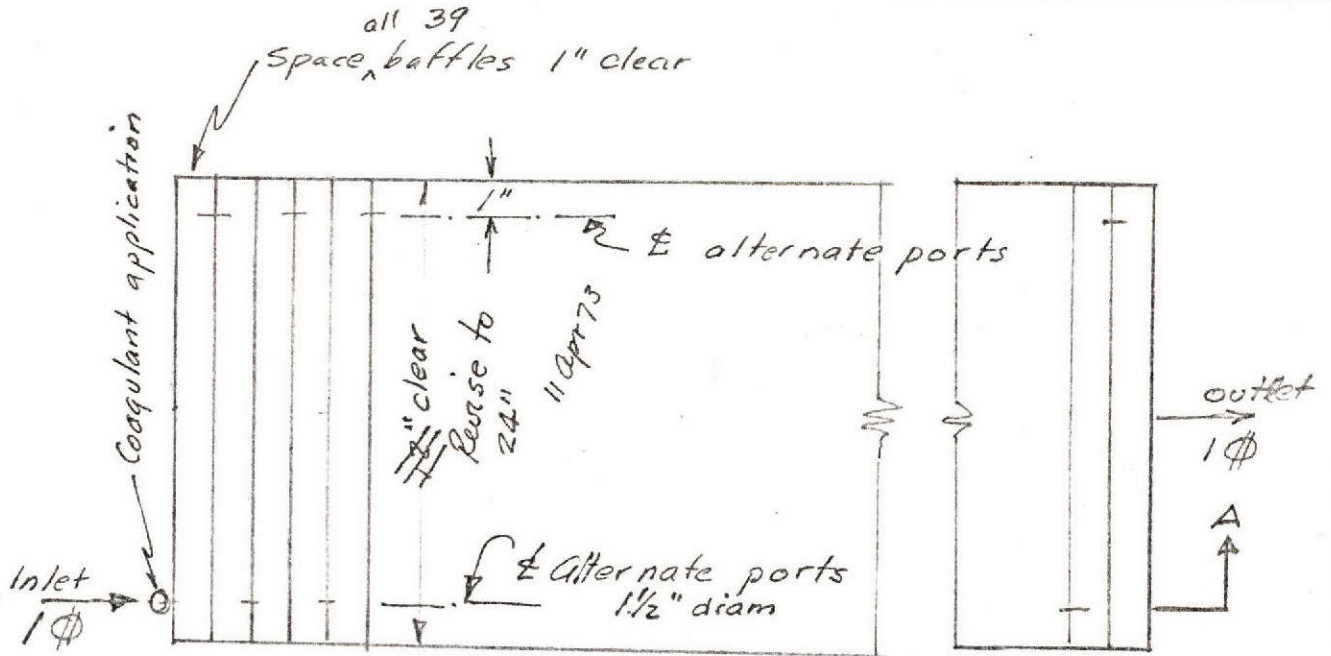 all 39
Space ‸ baffles 1" clear
Coagulant application
1"
℄ alternate ports
12" clear
Revise to
24"
11 Apr 73
outlet
1 ⌀
A
℄ Alternate ports
1 1/2" diam
Inlet
1 ⌀